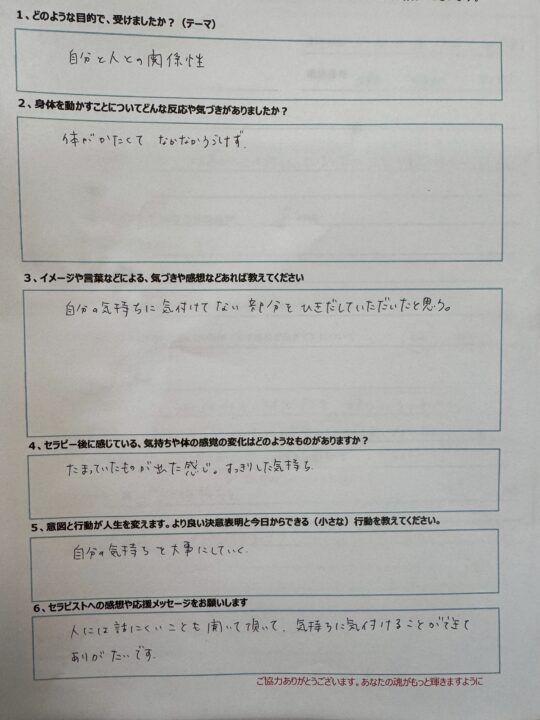 1、どのような目的で、受けましたか？（テーマ）
自分と人との関係性
2、身体を動かすことについてどんな反応や気づきがありましたか？
体がかたくて なかなかうごけず.
3、イメージや言葉などによる、気づきや感想などあれば教えてください
自分の気持ちに気付けてない部分をひきだしていただいたと思う。
4、セラピー後に感じている、気持ちや体の感覚の変化はどのようなものがありますか？
たまっていたものが出た感じ。すっきりした気持ち
5、意図と行動が人生を変えます。より良い決意表明と今日からできる（小さな）行動を教えてください。
自分の気持ちを大事にしていく.
6、セラピストへの感想や応援メッセージをお願いします
人には話にくいことも聞いて頂いて、気持ちに気付けることができて
ありがたいです.
ご協力ありがとうございます。あなたの魂がもっと輝きますように